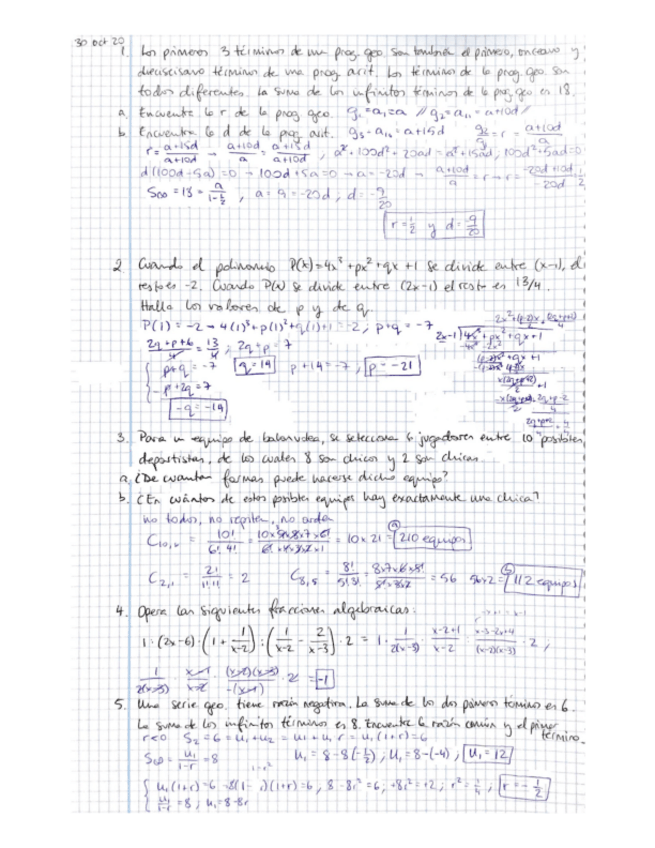 30 oct 20
1. Los primeros 3 términos de una prog. geo. son también el primero, onceavo y
dieciseisavo término de una prog. arit. Los términos de la prog. geo. son
todos diferentes. La suma de los infinitos términos de la prog. geo. es 18.
a. Encuentra la r de la prog geo. g₁=a₁=a // g₂=a₁₁=a+10d //
b. Encuentra la d de la prog. arit. g₃=a₁₆=a+15d g₂/g₁=r=(a+10d)/a
r=(a+15d)/(a+10d) → (a+10d)/a=(a+15d)/(a+10d), a²+100d²+20ad=a²+15ad; 100d²+5ad=0
d(100d-5a)=0 → 100d+5a=0 → a=-20d → (a+10d)/a=r → r=(-20d+10d)/-20d
S∞=18=a/(1-½), a=9=-20d, d=-9/20
r=1/2 y d=-9/20
2. Cuando el polinomio P(x)=4x³+px²+qx+1 se divide entre (x-1), el
resto es -2. Cuando P(x) se divide entre (2x-1) el resto es 13/4.
Halla los valores de p y de q.
P(1)=-2 → 4(1)³+p(1)²+q(1)+1=-2; p+q=-7
(2q+p+6)/4=13/4; 2q+p=7 2x-1 4x³+px²+qx+1
p+q=-7 q=14 p+14=-7, p=-21
p+2q=7
-q=-14
3. Para un equipo de balonvolea, se selecciona 6 jugadores entre 10 posibles
deportistas, de los cuales 8 son chicos y 2 son chicas.
a. ¿De cuantas formas puede hacerse dicho equipo?
b. ¿En cuántos de estos posibles equipos hay exactamente una chica?
no todos, no repiten, no orden
C₁₀,₆=10!/(6!·4!)=(10×9×8×7×6!)/(6!×4×3×2×1)=10×21=210 equipos
C₂,₁=2!/(1!1!)=2 C₈,₅=8!/(5!3!)=(8×7×6×5!)/(5!×3×2)=56 56×2=112 equipos
4. Opera las siguientes fracciones algebraicas:
1:(2x-6)·(1+1/(x-2)):(1/(x-2)-2/(x-3))·2=1·1/(2(x-3))·(x-2+1)/(x-2):(x-3-2x+4)/((x-2)(x-3))·2,
1/(2(x-3))·(x-1)/(x-2)·((x-2)(x-3))/(-(x-1))·2=-1
5. Una serie geo. tiene razón negativa. La suma de los dos primeros términos es 6.
La suma de los infinitos términos es 8. Encuentra la razón común y el primer
término.
r<0 S₂=6=u₁+u₂=u₁+u₁r=u₁(1+r)=6
S∞=u₁/(1-r)=8 u₁=8-8(-½); u₁=8-(-4); u₁=12
u₁(1+r)=6 → 8(1-r)(1+r)=6, 8-8r²=6; +8r²=+2; r²=1/4, r=-1/2
u₁/(1-r)=8; u₁=8-8r